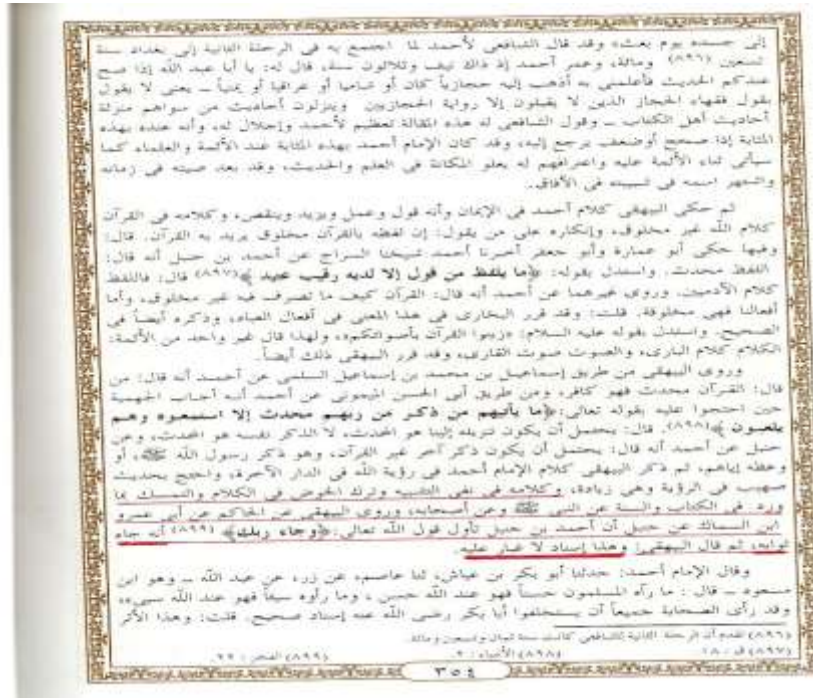 إلى جسده يوم بعثه وقد قال الشافعى لأحمد لما اجتمع به فى الرحلة الثانية إلى بغداد سنة
تسعين (٨٩٦) ومائة، وعمر أحمد إذ ذاك نيف وثلاثون سنة، قال له: يا أبا عبد الله إذا صح
عندكم الحديث فأعلمنى به أذهب إليه حجازياً كان أو شامياً أو عراقياً أو يمنياً ــ يعنى لا يقول
بقول فقهاء الحجاز الذين لا يقبلون إلا رواية الحجازيين وينزلون أحاديث من سواهم منزلة
أحاديث أهل الكتاب ــ وقول الشافعى له هذه المقالة تعظيم لأحمد وإجلال له، وأنه عنده بهذه
المثابة إذا صحح أوضعف يرجع إليه، وقد كان الإمام أحمد بهذه المثابة عند الأئمة والعلماء كما
سيأتى ثناء الأئمة عليه واعترافهم له بعلو المكانة فى العلم والحديث، وقد بعد صيته فى زمانه
واشتهر اسمه فى شبيبته فى الآفاق.
ثم حكى البيهقى كلام أحمد فى الإيمان وأنه قول وعمل ويزيد وينقص، وكلامه فى القرآن
كلام الله غير مخلوق، وإنكاره على من يقول: إن لفظه بالقرآن مخلوق يريد به القرآن. قال:
وفيها حكى أبو عمارة وأبو جعفر أخبرنا أحمد شيخنا السراج عن أحمد بن حنبل أنه قال:
اللفظ محدث. واستدل بقوله: ﴿ما يلفظ من قول إلا لديه رقيب عتيد﴾(٨٩٧) قال: فاللفظ
كلام الآدميين. وروى غيرهما عن أحمد أنه قال: القرآن كيف ما تصرف فيه غير مخلوق، وأما
أفعالنا فهى مخلوقة. قلت: وقد قرر البخارى فى هذا المعنى فى أفعال العباد، وذكره أيضاً فى
الصحيح. واستدل بقوله عليه السلام: «زينوا القرآن بأصواتكم»، ولهذا قال غير واحد من الأئمة:
الكلام كلام البارى، والصوت صوت القارى، وقد قرر البيهقى ذلك أيضاً.
وروى البيهقى من طريق إسماعيل بن محمد بن إسماعيل السلمى عن أحمد أنه قال: من
قال: القرآن محدث فهو كافر، ومن طريق أبى الحسن الميمونى عن أحمد أنه أجاب الجهمية
حين احتجوا عليه بقوله تعالى: ﴿ما يأتيهم من ذكر من ربهم محدث إلا استمعوه وهم
يلعبون﴾(٨٩٨). قال: يحتمل أن يكون تنزيله إلينا هو المحدث، لا الذكر نفسه هو المحدث، وعن
حنبل عن أحمد أنه قال: يحتمل أن يكون ذكر آخر غير القرآن، وهو ذكر رسول الله ﷺ، أو
وعظه إياهم، ثم ذكر البيهقى كلام الإمام أحمد فى رؤية الله فى الدار الآخرة، واحتج بحديث
صهيب فى الرؤية وهى زيادة، وكلامه فى نفى التشبيه وترك الخوض فى الكلام والتمسك بما
ورد فى الكتاب والسنة عن النبى ﷺ وعن أصحابه، وروى البيهقى عن الحاكم عن أبى عمرو
ابن السماك عن حنبل أن أحمد بن حنبل تأول قول الله تعالى: ﴿وجاء ربك﴾ (٨٩٩) أنه جاء
ثوابه، ثم قال البيهقى: وهذا إسناد لا غبار عليه.
وقال الإمام أحمد: حدثنا أبو بكر بن عياش، ثنا عاصم، عن زر، عن عبد الله ــ وهو ابن
مسعود ــ قال: ما رآه المسلمون حسناً فهو عند الله حسن، وما رأوه سيئاً فهو عند الله سيىء،
وقد رأى الصحابة جميعاً أن يستخلفوا أبا بكر رضى الله عنه إسناد صحيح. قلت: وهذا الأثر
(٨٩٦) تقدم أن الرحلة الثانية للشافعى كانت سنة ثمان وتسعين ومائة.
(٨٩٧) ق: ١٨. (٨٩٨) الأنبياء: ٢. (٨٩٩) الفجر: ٢٢.
٣٥٤